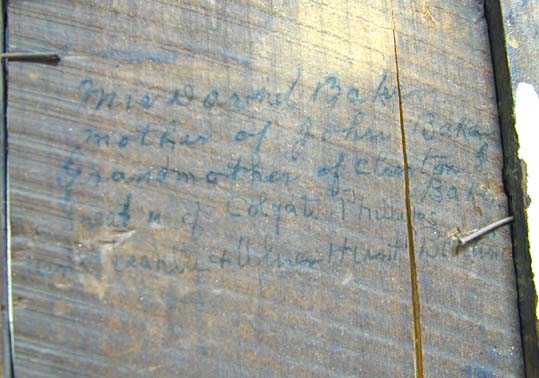 Mrs Daniel Baker
mother of John Baker
Grandmother of Clinton
Baker
Great " of Colgate Phillips
Hunt